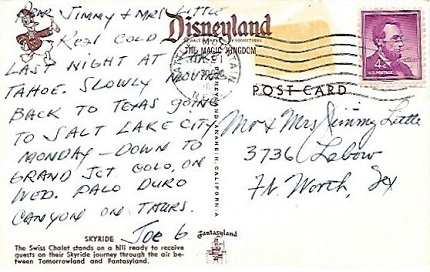 DEAR JIMMY & MRS LITTLE
REAL COLD
LAST NIGHT AT LAKE
TAHOE. SLOWLY MOVING
BACK TO TEXAS GOING
TO SALT LAKE CITY
MONDAY - DOWN TO
GRAND JCT COLO, ON
WED. PALO DURO
CANYON ON THURS.
JOE G
SKYRIDE
The Swiss Chalet stands on a hill ready to receive
guests on their Skyride journey through the air be-
tween Tomorrowland and Fantasyland.
Disneyland
THE MAGIC KINGDOM
POST CARD
4¢
U.S. POSTAGE
Mr & Mrs Jimmy Little
3736 Labow
Ft. Worth, Tex
ANAHEIM, CALIFORNIA
Fantasyland